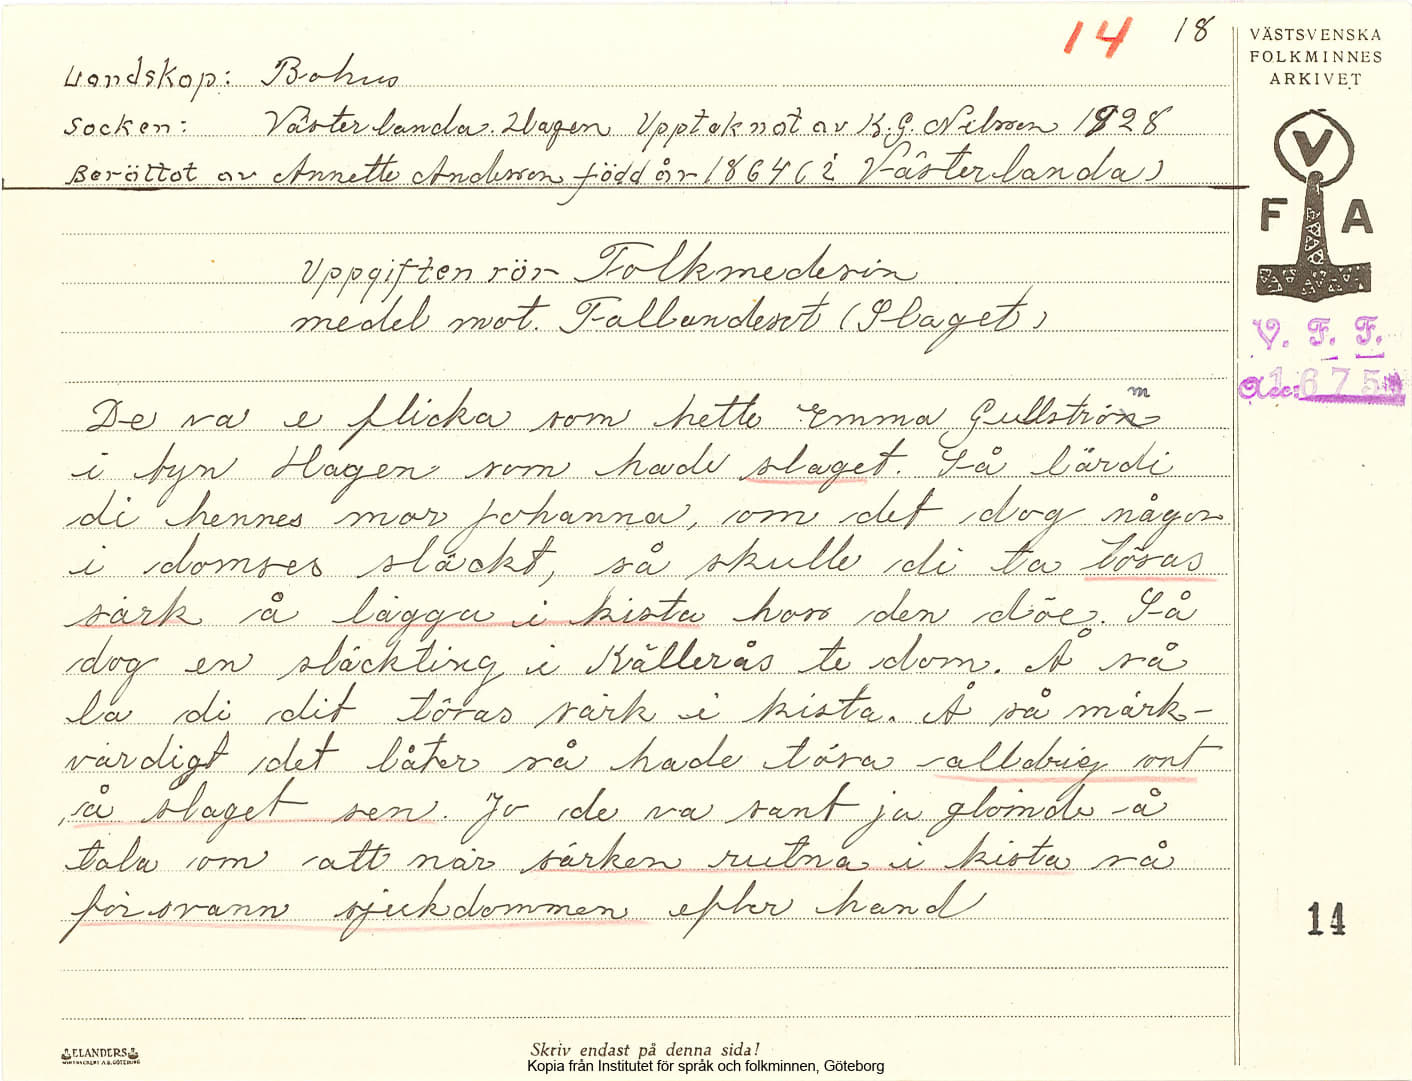 14 18
VÄSTSVENSKA
FOLKMINNES
ARKIVET
V
F A
V. F. F.
Acc: 1675
Landskap: Bohus
Socken: Västerlanda. Hagen Upptaknat av K. G. Nilsson 1928
Berättat av Annette Andersson född år 1864 (i Västerlanda)
Uppgiften rör Folkmedesin
medel mot. Fallandesot (Slaget)
De va e flicka som hette Emma Gullström
i byn Hagen som hade slaget. Så lärdi
di hennes mor Johanna, om det dog någon
i domses släckt, så skulle di ta tösas
särk å lägga i kista hos den döe. Så
dog en släckting i Källerås te dom. Å så
la di dit tösas särk i kista. Å så märk-
värdigt det låter så hade tösa alldrig ont
å slaget sen. Jo de va sant ja glömde å
tala om att när särken rutna i kista så
försvann sjukdommen efter hand
14
ELANDERS
Skriv endast på denna sida!
Kopia från Institutet för språk och folkminnen, Göteborg